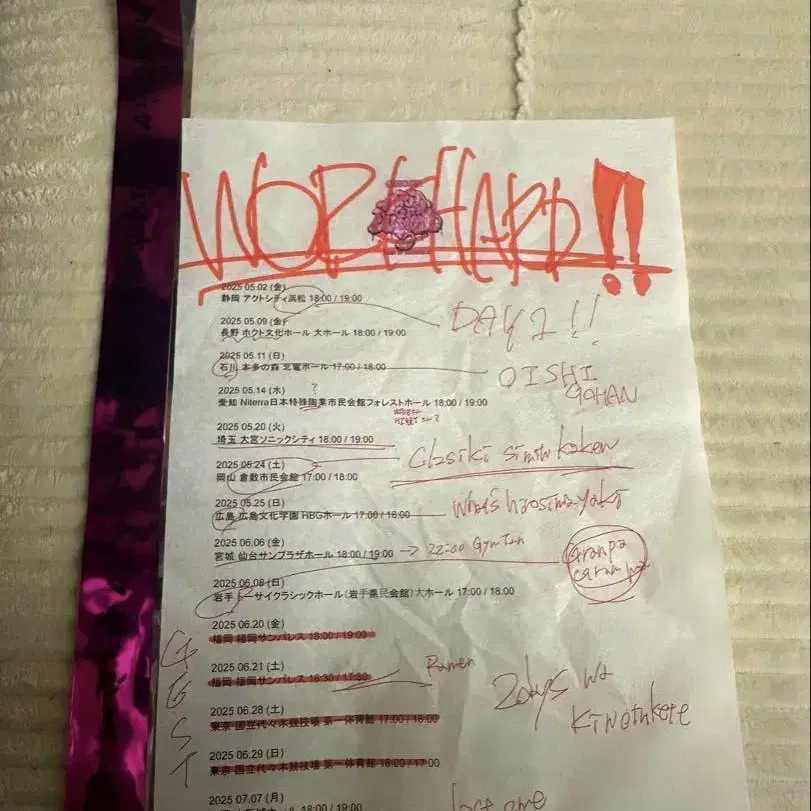 WORK HARD!!
2025 05.02 (金)
静岡 アクトシティ浜松 18:00 / 19:00
DAY 1!!
2025 05.09 (金)
長野 ホクト文化ホール 大ホール 18:00 / 19:00
2025 05.11 (日)
石川 本多の森 北電ホール 17:00 / 18:00
OISHI
GOHAN
2025 05.14 (水)
?
愛知 Niterra日本特殊陶業市民会館フォレストホール 18:00 / 19:00
2025 05.20 (火)
埼玉 大宮ソニックシティ 18:00 / 19:00
2025 05.24 (土)
岡山 倉敷市民会館 17:00 / 18:00
2025 05.25 (日)
広島 広島文化学園 HBGホール 17:00 / 18:00
what's hirosima yaki
2025 06.06 (金)
宮城 仙台サンプラザホール 18:00 / 19:00 → 22:00 Gyu Tan
2025 06.08 (日)
岩手 トーサイクラシックホール(岩手県民会館)大ホール 17:00 / 18:00
2025 06.20 (金)
福岡 福岡サンパレス 18:00 / 19:00
2025 06.21 (土)
福岡 福岡サンパレス 16:30 / 17:30
Ramen
2days wa
kiwotukete
2025 06.28 (土)
東京 国立代々木競技場 第一体育館 17:00 / 18:00
2025 06.29 (日)
東京 国立代々木競技場 第一体育館 16:00 / 17:00
2025 07.07 (月)
18:00 / 19:00
last one